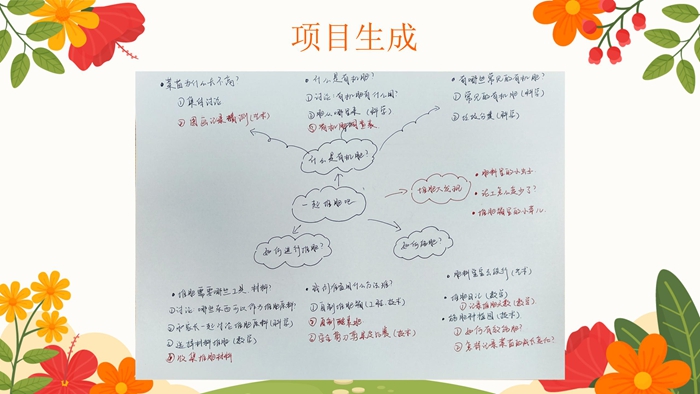 项目生成
•菜苗为什么长不高?
①集体讨论
②图画记录猜测(艺术)
•什么是有机肥?
①讨论:有机肥有什么用?
②肥从哪里来(科学)
③有机肥调查表
•有哪些常见的有机肥?
①常见的有机肥(科学)
②垃圾分类(科学)
什么是有机肥?
一起堆肥吧
堆肥大发现
•肥料里的小虫子
•泥土怎么变少了?
•堆肥箱里的小芽儿
如何进行堆肥?
如何施肥?
•堆肥需要哪些工具、材料?
①讨论:哪些东西可以作为堆肥原料?
②和家长一起讨论堆肥原料(科学)
③选择材料堆肥(数学)
④收集堆肥材料
•我们准备用什么方法堆?
①自制堆肥箱(工程、技术)
②自制酵素肥
•堆肥日记(数学)
①记录堆肥次数(数学)
•施肥种植园(技术)
①如何有效施肥?
②怎样记录菜苗的成长变化?